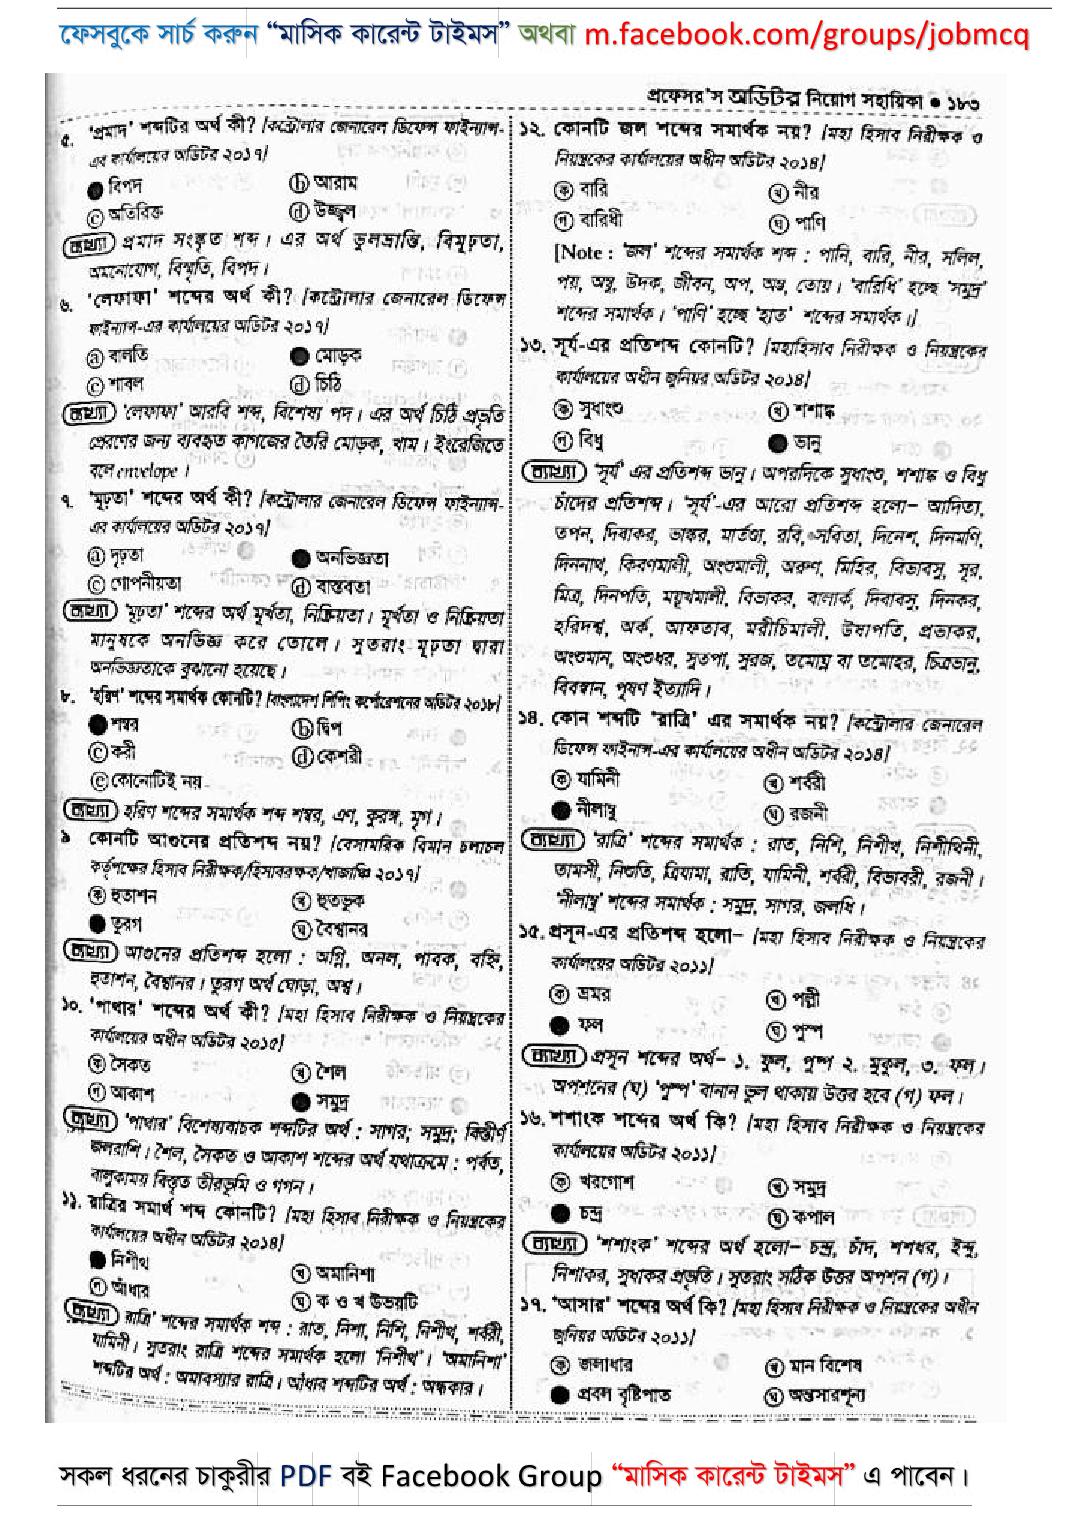 ফেসবুকে সার্চ করুন “মাসিক কারেন্ট টাইমস” অথবা m.facebook.com/groups/jobmcq
প্রফেসর'স অডিটর নিয়োগ সহায়িকা ● ১৮৩
৫. 'প্রমাদ' শব্দটির অর্থ কী? [কন্ট্রোলার জেনারেল ডিফেন্স ফাইন্যান্স-
এর কার্যালয়ের অডিটর ২০১৭]
বিপদ ⓑ আরাম
ⓒ অতিরিক্ত ⓓ উজ্জ্বল
ব্যাখ্যা প্রমাদ সংস্কৃত শব্দ। এর অর্থ ভুলভ্রান্তি, বিমূঢ়তা,
অমনোযোগ, বিস্মৃতি, বিপদ।
৬. 'লেফাফা' শব্দের অর্থ কী? [কন্ট্রোলার জেনারেল ডিফেন্স
ফাইন্যান্স-এর কার্যালয়ের অডিটর ২০১৭]
ⓐ বালতি মোড়ক
ⓒ শাবল ⓓ চিঠি
ব্যাখ্যা 'লেফাফা' আরবি শব্দ, বিশেষ্য পদ। এর অর্থ চিঠি প্রভৃতি
প্রেরণের জন্য ব্যবহৃত কাগজের তৈরি মোড়ক, খাম। ইংরেজিতে
বলে envelope।
৭. 'মূঢ়তা' শব্দের অর্থ কী? [কন্ট্রোলার জেনারেল ডিফেন্স ফাইন্যান্স-
এর কার্যালয়ের অডিটর ২০১৭]
ⓐ দৃঢ়তা অনভিজ্ঞতা
ⓒ গোপনীয়তা ⓓ বাস্তবতা
ব্যাখ্যা 'মূঢ়তা' শব্দের অর্থ মূর্খতা, নিষ্ক্রিয়তা। মূর্খতা ও নিষ্ক্রিয়তা
মানুষকে অনভিজ্ঞ করে তোলে। সুতরাং মূঢ়তা দ্বারা
অনভিজ্ঞতাকে বুঝানো হয়েছে।
৮. 'হরিণ' শব্দের সমার্থক কোনটি? [বাংলাদেশ শিপিং কর্পোরেশনের অডিটর ২০১৮]
শম্বর ⓑ দ্বিপ
ⓒ করী ⓓ কেশরী
ⓔ কোনোটিই নয়
ব্যাখ্যা হরিণ শব্দের সমার্থক শব্দ শম্বর, এণ, কুরঙ্গ, মৃগ।
৯ কোনটি আগুনের প্রতিশব্দ নয়? [বেসামরিক বিমান চলাচল
কর্তৃপক্ষের হিসাব নিরীক্ষক/হিসাবরক্ষক/খাজাঞ্চি ২০১৭]
ক হুতাশন খ হুতভুক
তুরগ ঘ বৈশ্বানর
ব্যাখ্যা আগুনের প্রতিশব্দ হলো : অগ্নি, অনল, পাবক, বহ্নি,
হুতাশন, বৈশ্বানর। তুরগ অর্থ ঘোড়া, অশ্ব।
১০. 'পাথার' শব্দের অর্থ কী? [মহা হিসাব নিরীক্ষক ও নিয়ন্ত্রকের
কার্যালয়ের অধীন অডিটর ২০১৫]
ক সৈকত খ শৈল
গ আকাশ সমুদ্র
ব্যাখ্যা 'পাথার' বিশেষ্যবাচক শব্দটির অর্থ : সাগর; সমুদ্র; বিস্তীর্ণ
জলরাশি। শৈল, সৈকত ও আকাশ শব্দের অর্থ যথাক্রমে : পর্বত,
বালুকাময় বিস্তৃত তীরভূমি ও গগন।
১১. রাত্রির সমার্থ শব্দ কোনটি? [মহা হিসাব নিরীক্ষক ও নিয়ন্ত্রকের
কার্যালয়ের অধীন অডিটর ২০১৪]
নিশীথ খ অমানিশা
গ আঁধার ঘ ক ও খ উভয়টি
ব্যাখ্যা রাত্রি' শব্দের সমার্থক শব্দ : রাত, নিশা, নিশি, নিশীথ, শর্বরী,
যামিনী। সুতরাং রাত্রি শব্দের সমার্থক হলো 'নিশীথ'। 'অমানিশা'
শব্দটির অর্থ : অমাবস্যার রাত্রি। আঁধার শব্দটির অর্থ : অন্ধকার।
১২. কোনটি জল শব্দের সমার্থক নয়? [মহা হিসাব নিরীক্ষক ও
নিয়ন্ত্রকের কার্যালয়ের অধীন অডিটর ২০১৪]
ক বারি খ নীর
গ বারিধী ঘ পাণি
[Note : 'জল' শব্দের সমার্থক শব্দ : পানি, বারি, নীর, সলিল,
পয়, অম্বু, উদক, জীবন, অপ, অম্ভ, তোয়। 'বারিধি' হচ্ছে 'সমুদ্র'
শব্দের সমার্থক। 'পাণি' হচ্ছে 'হাত' শব্দের সমার্থক।]
১৩. সূর্য-এর প্রতিশব্দ কোনটি? [মহাহিসাব নিরীক্ষক ও নিয়ন্ত্রকের
কার্যালয়ের অধীন জুনিয়র অডিটর ২০১৪]
ক সুধাংশু খ শশাঙ্ক
গ বিধু ভানু
ব্যাখ্যা 'সূর্য' এর প্রতিশব্দ ভানু। অপরদিকে সুধাংশু, শশাঙ্ক ও বিধু
চাঁদের প্রতিশব্দ। 'সূর্য'-এর আরো প্রতিশব্দ হলো– আদিত্য,
তপন, দিবাকর, ভাস্কর, মার্তণ্ড, রবি, সবিতা, দিনেশ, দিনমণি,
দিননাথ, কিরণমালী, অংশুমালী, অরুণ, মিহির, বিভাবসু, সূর,
মিত্র, দিনপতি, ময়ূখমালী, বিভাকর, বালার্ক, দিবাবসু, দিনকর,
হরিদশ্ব, অর্ক, আফতাব, মরীচিমালী, উষাপতি, প্রভাকর,
অংশুমান, অংশুধর, সুতপা, সুরজ, তমোঘ্ন বা তমোহর, চিত্রভানু,
বিবস্বান, পূষণ ইত্যাদি।
১৪. কোন শব্দটি 'রাত্রি' এর সমার্থক নয়? [কন্ট্রোলার জেনারেল
ডিফেন্স ফাইনান্স-এর কার্যালয়ের অধীন অডিটর ২০১৪]
ক যামিনী খ শর্বরী
নীলাম্বু ঘ রজনী
ব্যাখ্যা 'রাত্রি' শব্দের সমার্থক : রাত, নিশি, নিশীথ, নিশীথিনী,
তামসী, নিশুতি, ত্রিযামা, রাতি, যামিনী, শর্বরী, বিভাবরী, রজনী।
'নীলাম্বু' শব্দের সমার্থক : সমুদ্র, সাগর, জলধি।
১৫. প্রসূন-এর প্রতিশব্দ হলো– [মহা হিসাব নিরীক্ষক ও নিয়ন্ত্রকের
কার্যালয়ের অডিটর ২০১১]
ক ভ্রমর খ পল্লী
ফল ঘ পুস্প
ব্যাখ্যা প্রসূন শব্দের অর্থ– ১. ফুল, পুষ্প ২. মুকুল, ৩. ফল।
অপশনের (ঘ) 'পুস্প' বানান ভুল থাকায় উত্তর হবে (গ) ফল।
১৬. শশাংক শব্দের অর্থ কি? [মহা হিসাব নিরীক্ষক ও নিয়ন্ত্রকের
কার্যালয়ের অডিটর ২০১১]
ক খরগোশ খ সমুদ্র
চন্দ্র ঘ কপাল
ব্যাখ্যা 'শশাংক' শব্দের অর্থ হলো– চন্দ্র, চাঁদ, শশধর, ইন্দু,
নিশাকর, সুধাকর প্রভৃতি। সুতরাং সঠিক উত্তর অপশন (গ)।
১৭. 'আসার' শব্দের অর্থ কি? [মহা হিসাব নিরীক্ষক ও নিয়ন্ত্রকের অধীন
জুনিয়র অডিটর ২০১১]
ক জলাধার খ মান বিশেষ
প্রবল বৃষ্টিপাত ঘ অন্তসারশূন্য
সকল ধরনের চাকুরীর PDF বই Facebook Group “মাসিক কারেন্ট টাইমস” এ পাবেন।